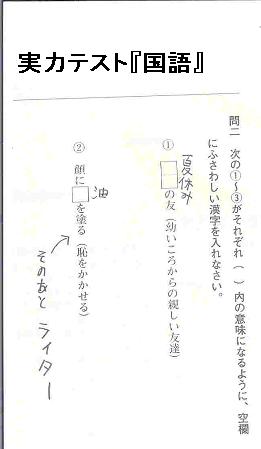 実力テスト『国語』
問二　次の①～③がそれぞれ（　）内の意味になるように、空欄
にふさわしい漢字を入れなさい。
夏休み
① □□の友（幼いころからの親しい友達）
油
② 顔に□を塗る（恥をかかせる）
そのあと ライター